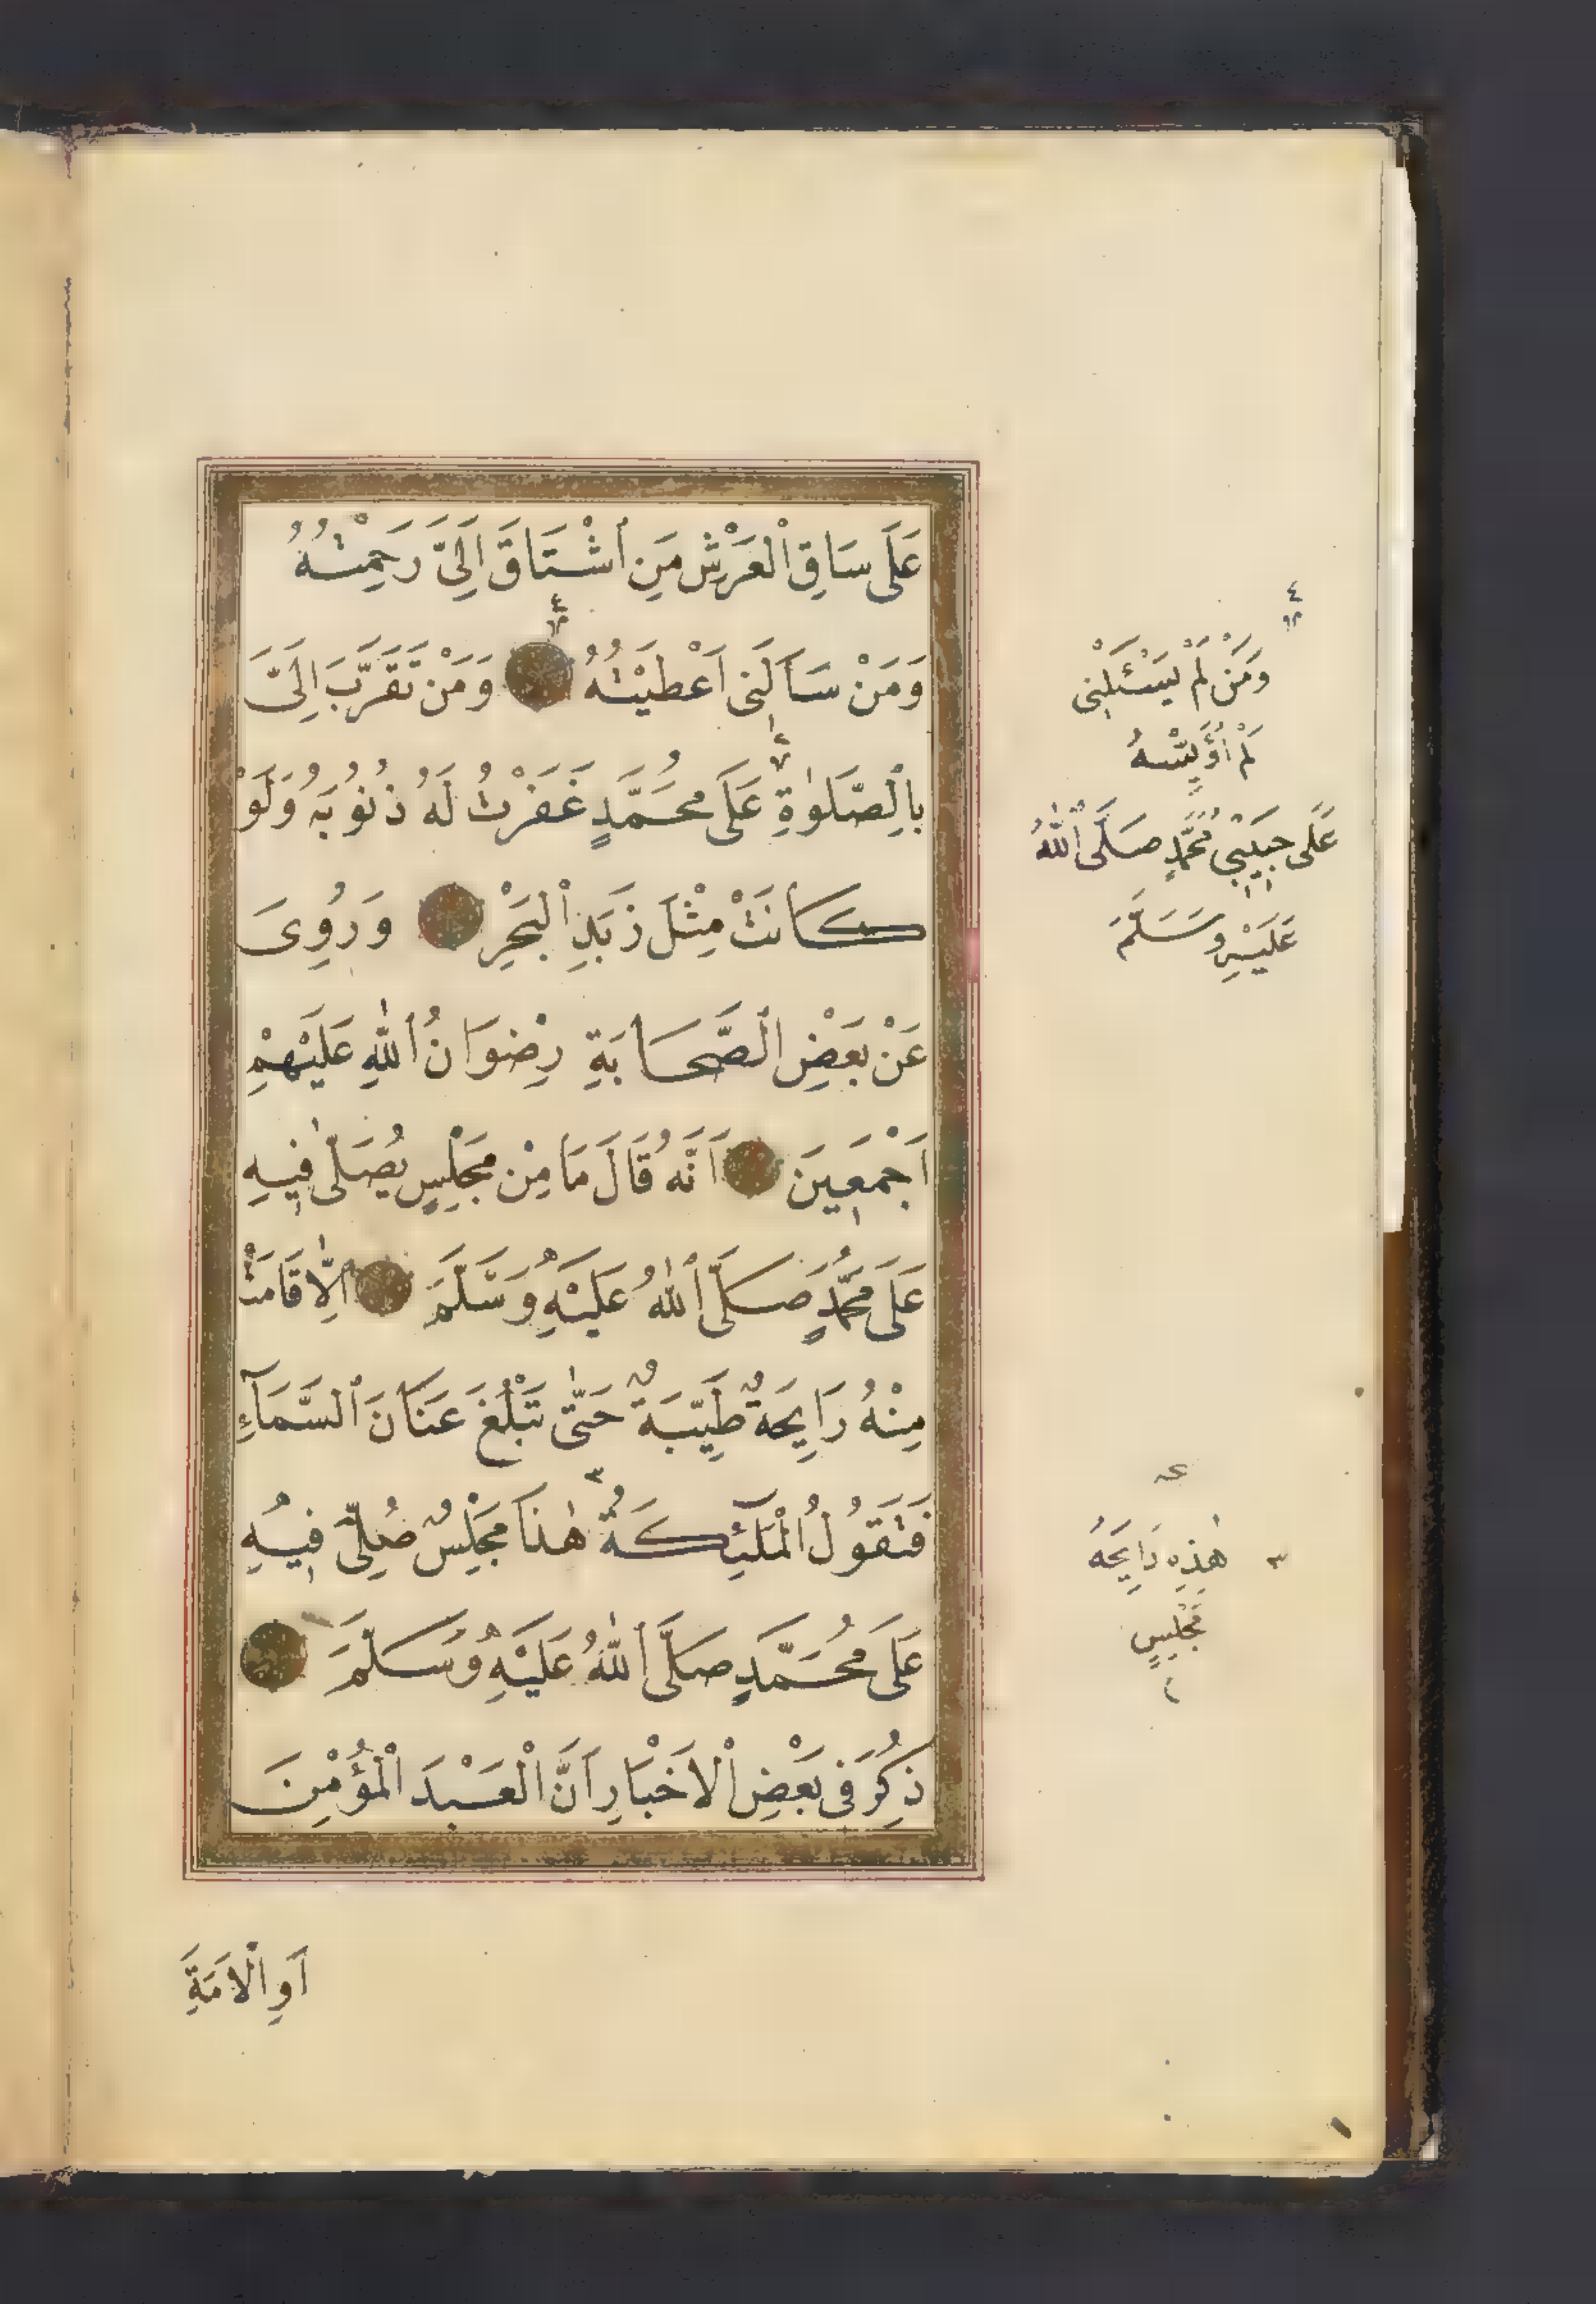 عَلَى سَاقِ الْعَرْشِ مَنِ اشْتَاقَ اِلَىَّ رَحِمْتُهُ
وَمَنْ سَاَلَنِى اَعْطَيْتُهُ وَمَنْ تَقَرَّبَ اِلَىَّ
بِالصَّلٰوةِ عَلَى مُحَمَّدٍ غَفَرْتُ لَهُ ذُنُوبَهُ وَلَوْ
كَانَتْ مِثْلَ زَبَدِ الْبَحْرِ وَرُوِىَ
عَنْ بَعْضِ الصَّحَابَةِ رِضْوَانُ اللّٰهِ عَلَيْهِمْ
اَجْمَعِينَ اَنَّهُ قَالَ مَا مِنْ مَجْلِسٍ يُصَلّٰى فِيهِ
عَلَى مُحَمَّدٍ صَلَّى اللّٰهُ عَلَيْهِ وَسَلَّمَ اِلَّا قَامَتْ
مِنْهُ رَايِحَةٌ طَيِّبَةٌ حَتّٰى تَبْلُغَ عَنَانَ السَّمَآءِ
فَتَقُولُ الْمَلٰٓئِكَةُ هٰذَا مَجْلِسٌ صُلِّىَ فِيهِ
عَلَى مُحَمَّدٍ صَلَّى اللّٰهُ عَلَيْهِ وَسَلَّمَ
ذُكِرَ فِى بَعْضِ الْاَخْبَارِ اَنَّ الْعَبْدَ الْمُؤْمِنَ
اَوِ الْاَمَةَ
وَمَنْ لَمْ يَسْئَلْنِى
لَمْ اُؤَيِّسْهُ
عَلَى حَبِيبِى مُحَمَّدٍ صَلَّى اللّٰهُ
عَلَيْهِ وَسَلَّمَ
هٰذِهِ رَايِحَةُ
مَجْلِسٍ